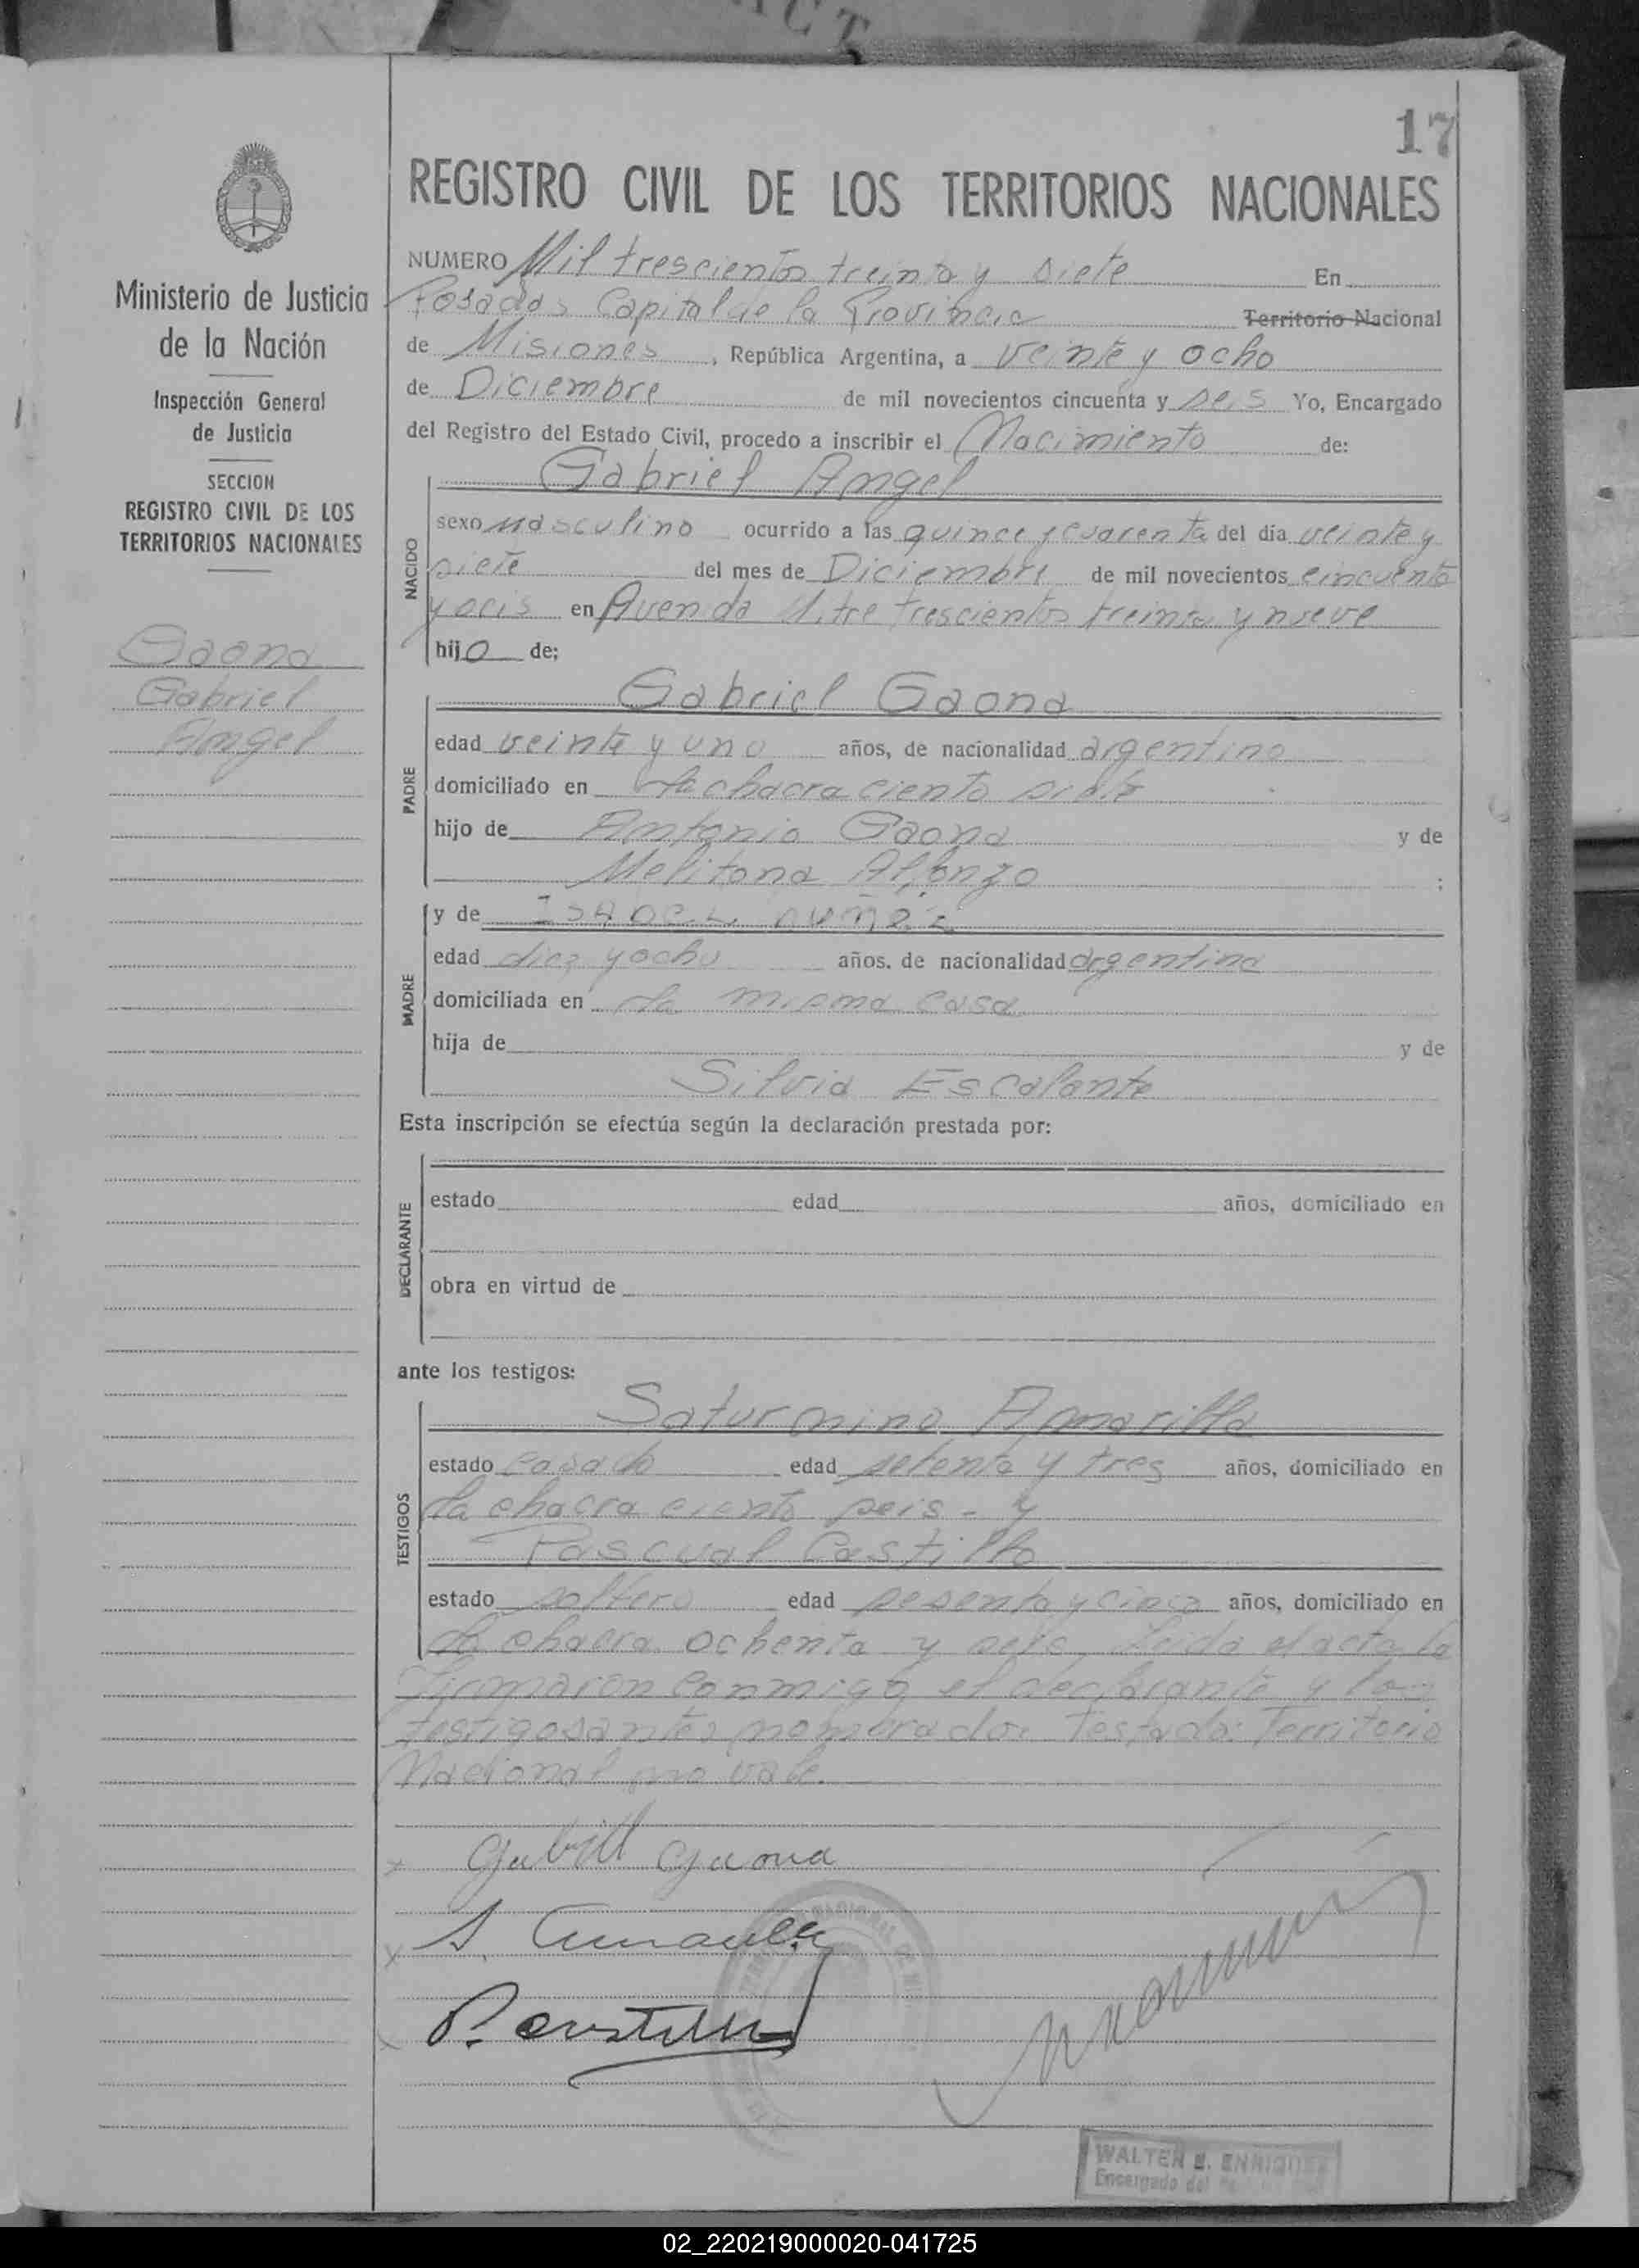 17
REGISTRO CIVIL DE LOS TERRITORIOS NACIONALES
Ministerio de Justicia
de la Nación
Inspección General
de Justicia
SECCION
REGISTRO CIVIL DE LOS
TERRITORIOS NACIONALES
Gaona
Gabriel
Angel
NUMERO Mil trescientos treinta y siete En
Posadas Capital de la Provincia Territorio Nacional
de Misiones, República Argentina, a veinte y ocho
de Diciembre de mil novecientos cincuenta y seis Yo, Encargado
del Registro del Estado Civil, procedo a inscribir el Nacimiento de:
Gabriel Angel
NACIDO
sexo masculino ocurrido a las quince y cuarenta del día veinte y
siete del mes de Diciembre de mil novecientos cincuenta
y seis en Avenida Mitre trescientos treinta y nueve
hijo de;
Gabriel Gaona
PADRE
edad veinte y uno años, de nacionalidad argentino
domiciliado en la chacra ciento siete
hijo de Antonio Gaona y de
Melitona Alfonzo :
MADRE
y de ISABEL NUÑEZ
edad diez y ocho años, de nacionalidad argentina
domiciliada en la misma casa
hija de y de
Silvia Escalante
Esta inscripción se efectúa según la declaración prestada por:
DECLARANTE
estado edad años, domiciliado en
obra en virtud de
ante los testigos:
TESTIGOS
Saturnino Amarilla
estado casado edad setenta y tres años, domiciliado en
la chacra ciento seis - y
Pascual Castillo
estado soltero edad sesenta y cinco años, domiciliado en
la chacra ochenta y seis, Leida el acta la
firmaron conmigo el declarante y los
testigos antes nombrados Testado: Territorio
Nacional no vale.
x Gabriel Gaona
x S. Amarilla
x P. Castillo
WALTER E. ENRIQUEZ
Encargado del
02_220219000020-041725